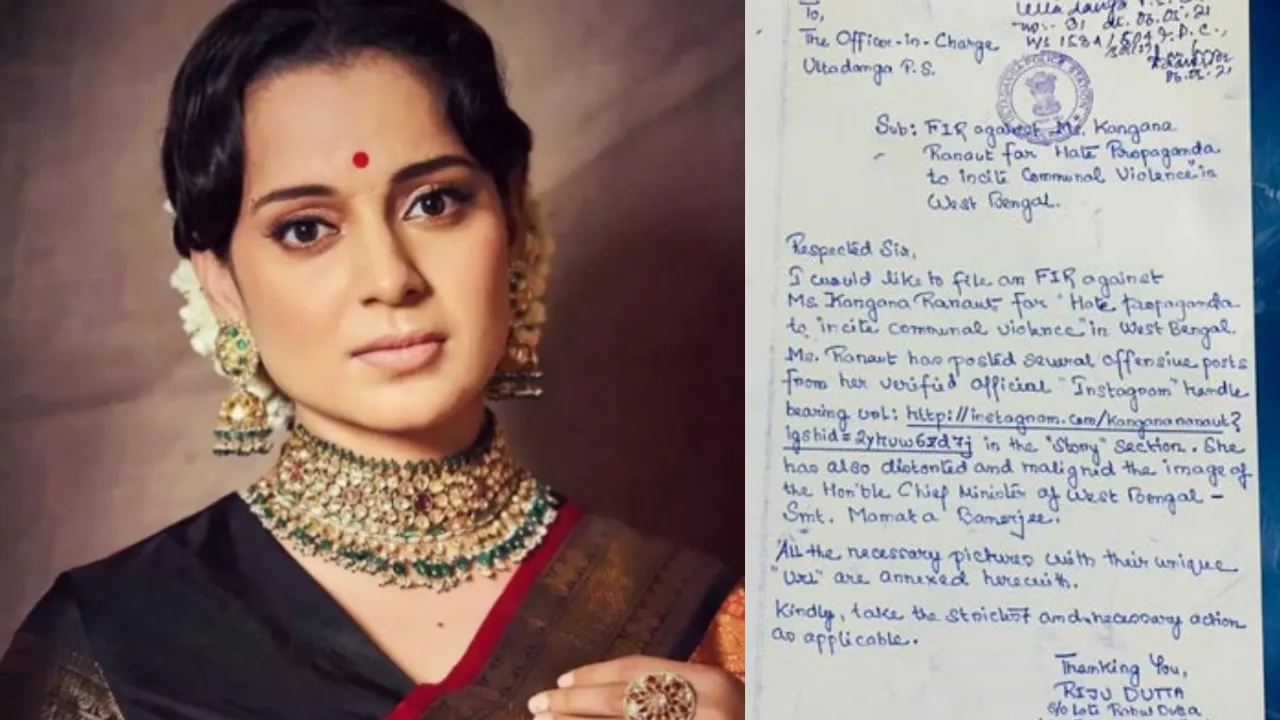 To,
The Officer-in-Charge
Ultadanga P.S.
Ulta danga P.S.
no:- 91 dt. 06.05.21
u/s 153A/504 I.P.C.,
06.05.21
Sub: FIR against Ms. Kangana
Ranaut for Hate Propaganda
to incite Communal Violence" in
West Bengal.
Respected Sir,
I would like to file an FIR against
Ms. Kangana Ranaut for "Hate propaganda
to incite communal violence" in West Bengal.
Ms. Ranaut has posted several offensive posts
from her verified official "Instagram" handle
bearing url: http://instagram.com/kanganaranaut?
igshid=2yhuw6zd7j in the "Story" section. She
has also distorted and maligned the image of
the Hon'ble Chief Minister of West Bengal –
Smt. Mamata Banerjee.
All the necessary pictures with their unique
"Url" are annexed herewith.
Kindly, take the strictest and necessary action
as applicable.
Thanking You,
RIJU DUTTA
S/o Late